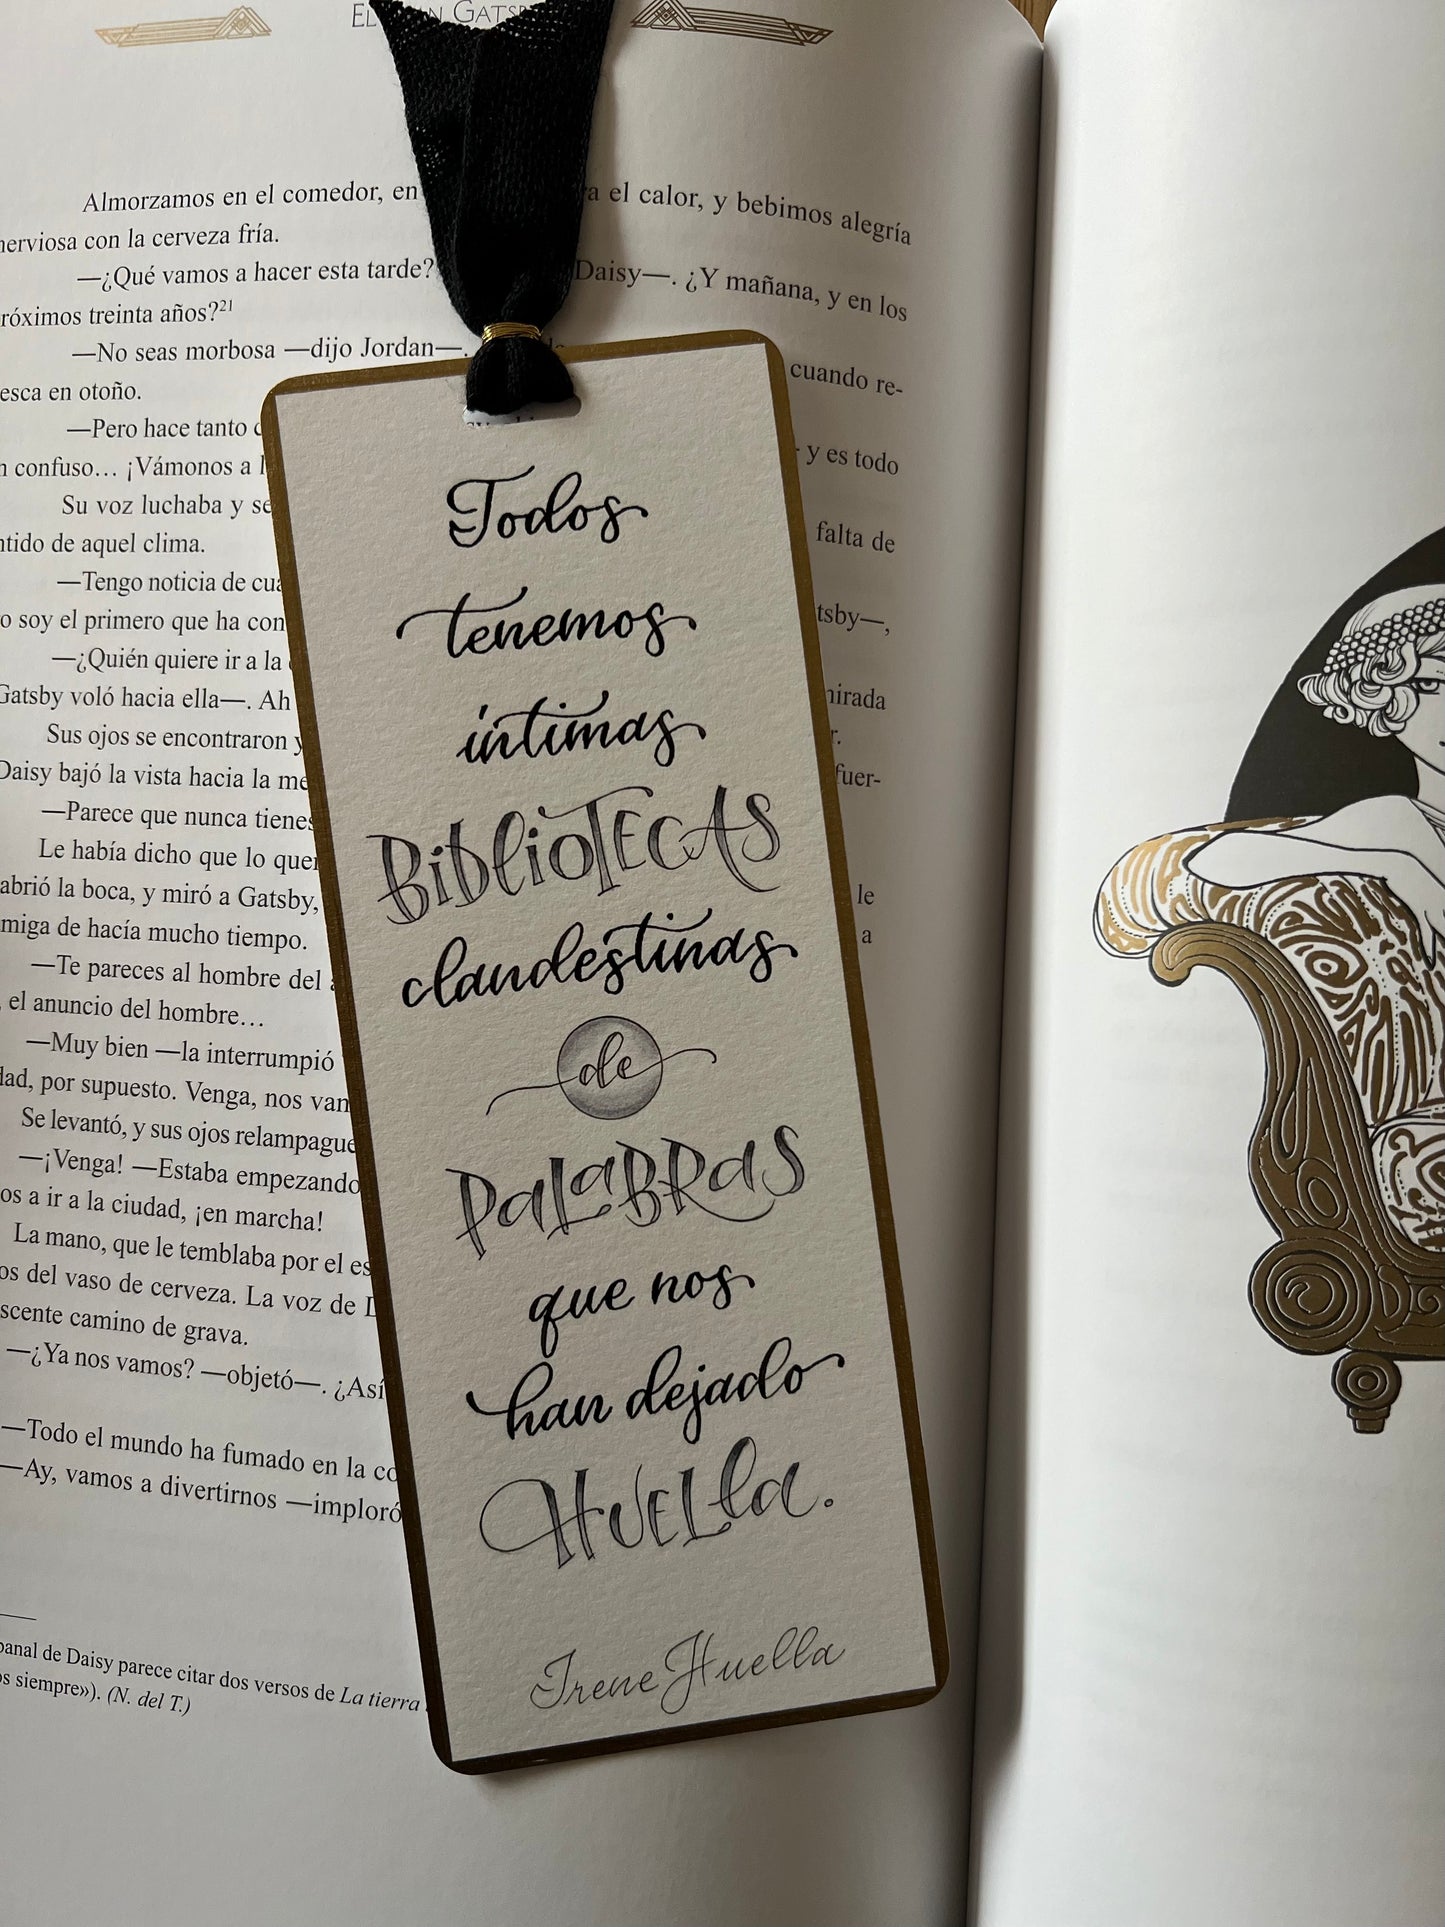 EL GATSBY
Almorzamos en el comedor, en
a el calor, y bebimos alegría
nerviosa con la cerveza fría.
—¿Qué vamos a hacer esta tarde?
Daisy—. ¿Y mañana, y en los
róximos treinta años?21
—No seas morbosa —dijo Jordan—.
cuando re-
esca en otoño.
—Pero hace tanto
y es todo
n confuso… ¡Vámonos a l
Su voz luchaba y se
falta de
ntido de aquel clima.
—Tengo noticia de cua
o soy el primero que ha con
tsby—,
—¿Quién quiere ir a la
Gatsby voló hacia ella—. Ah
mirada
Sus ojos se encontraron y
r.
Daisy bajó la vista hacia la me
fuer-
—Parece que nunca tienes
Le había dicho que lo quer
le
abrió la boca, y miró a Gatsby,
a
miga de hacía mucho tiempo.
—Te pareces al hombre del a
, el anuncio del hombre…
—Muy bien —la interrumpió
dad, por supuesto. Venga, nos vam
Se levantó, y sus ojos relampague
—¡Venga! —Estaba empezando
os a ir a la ciudad, ¡en marcha!
La mano, que le temblaba por el es
os del vaso de cerveza. La voz de D
scente camino de grava.
—¿Ya nos vamos? —objetó—. ¿Así
—Todo el mundo ha fumado en la co
—Ay, vamos a divertirnos —imploró
banal de Daisy parece citar dos versos de La tierra
os siempre»). (N. del T.)
Todos
tenemos
íntimas
BIBLIOTECAS
clandestinas
de
PALABRAS
que nos
han dejado
HUELLA.
Irene Huella